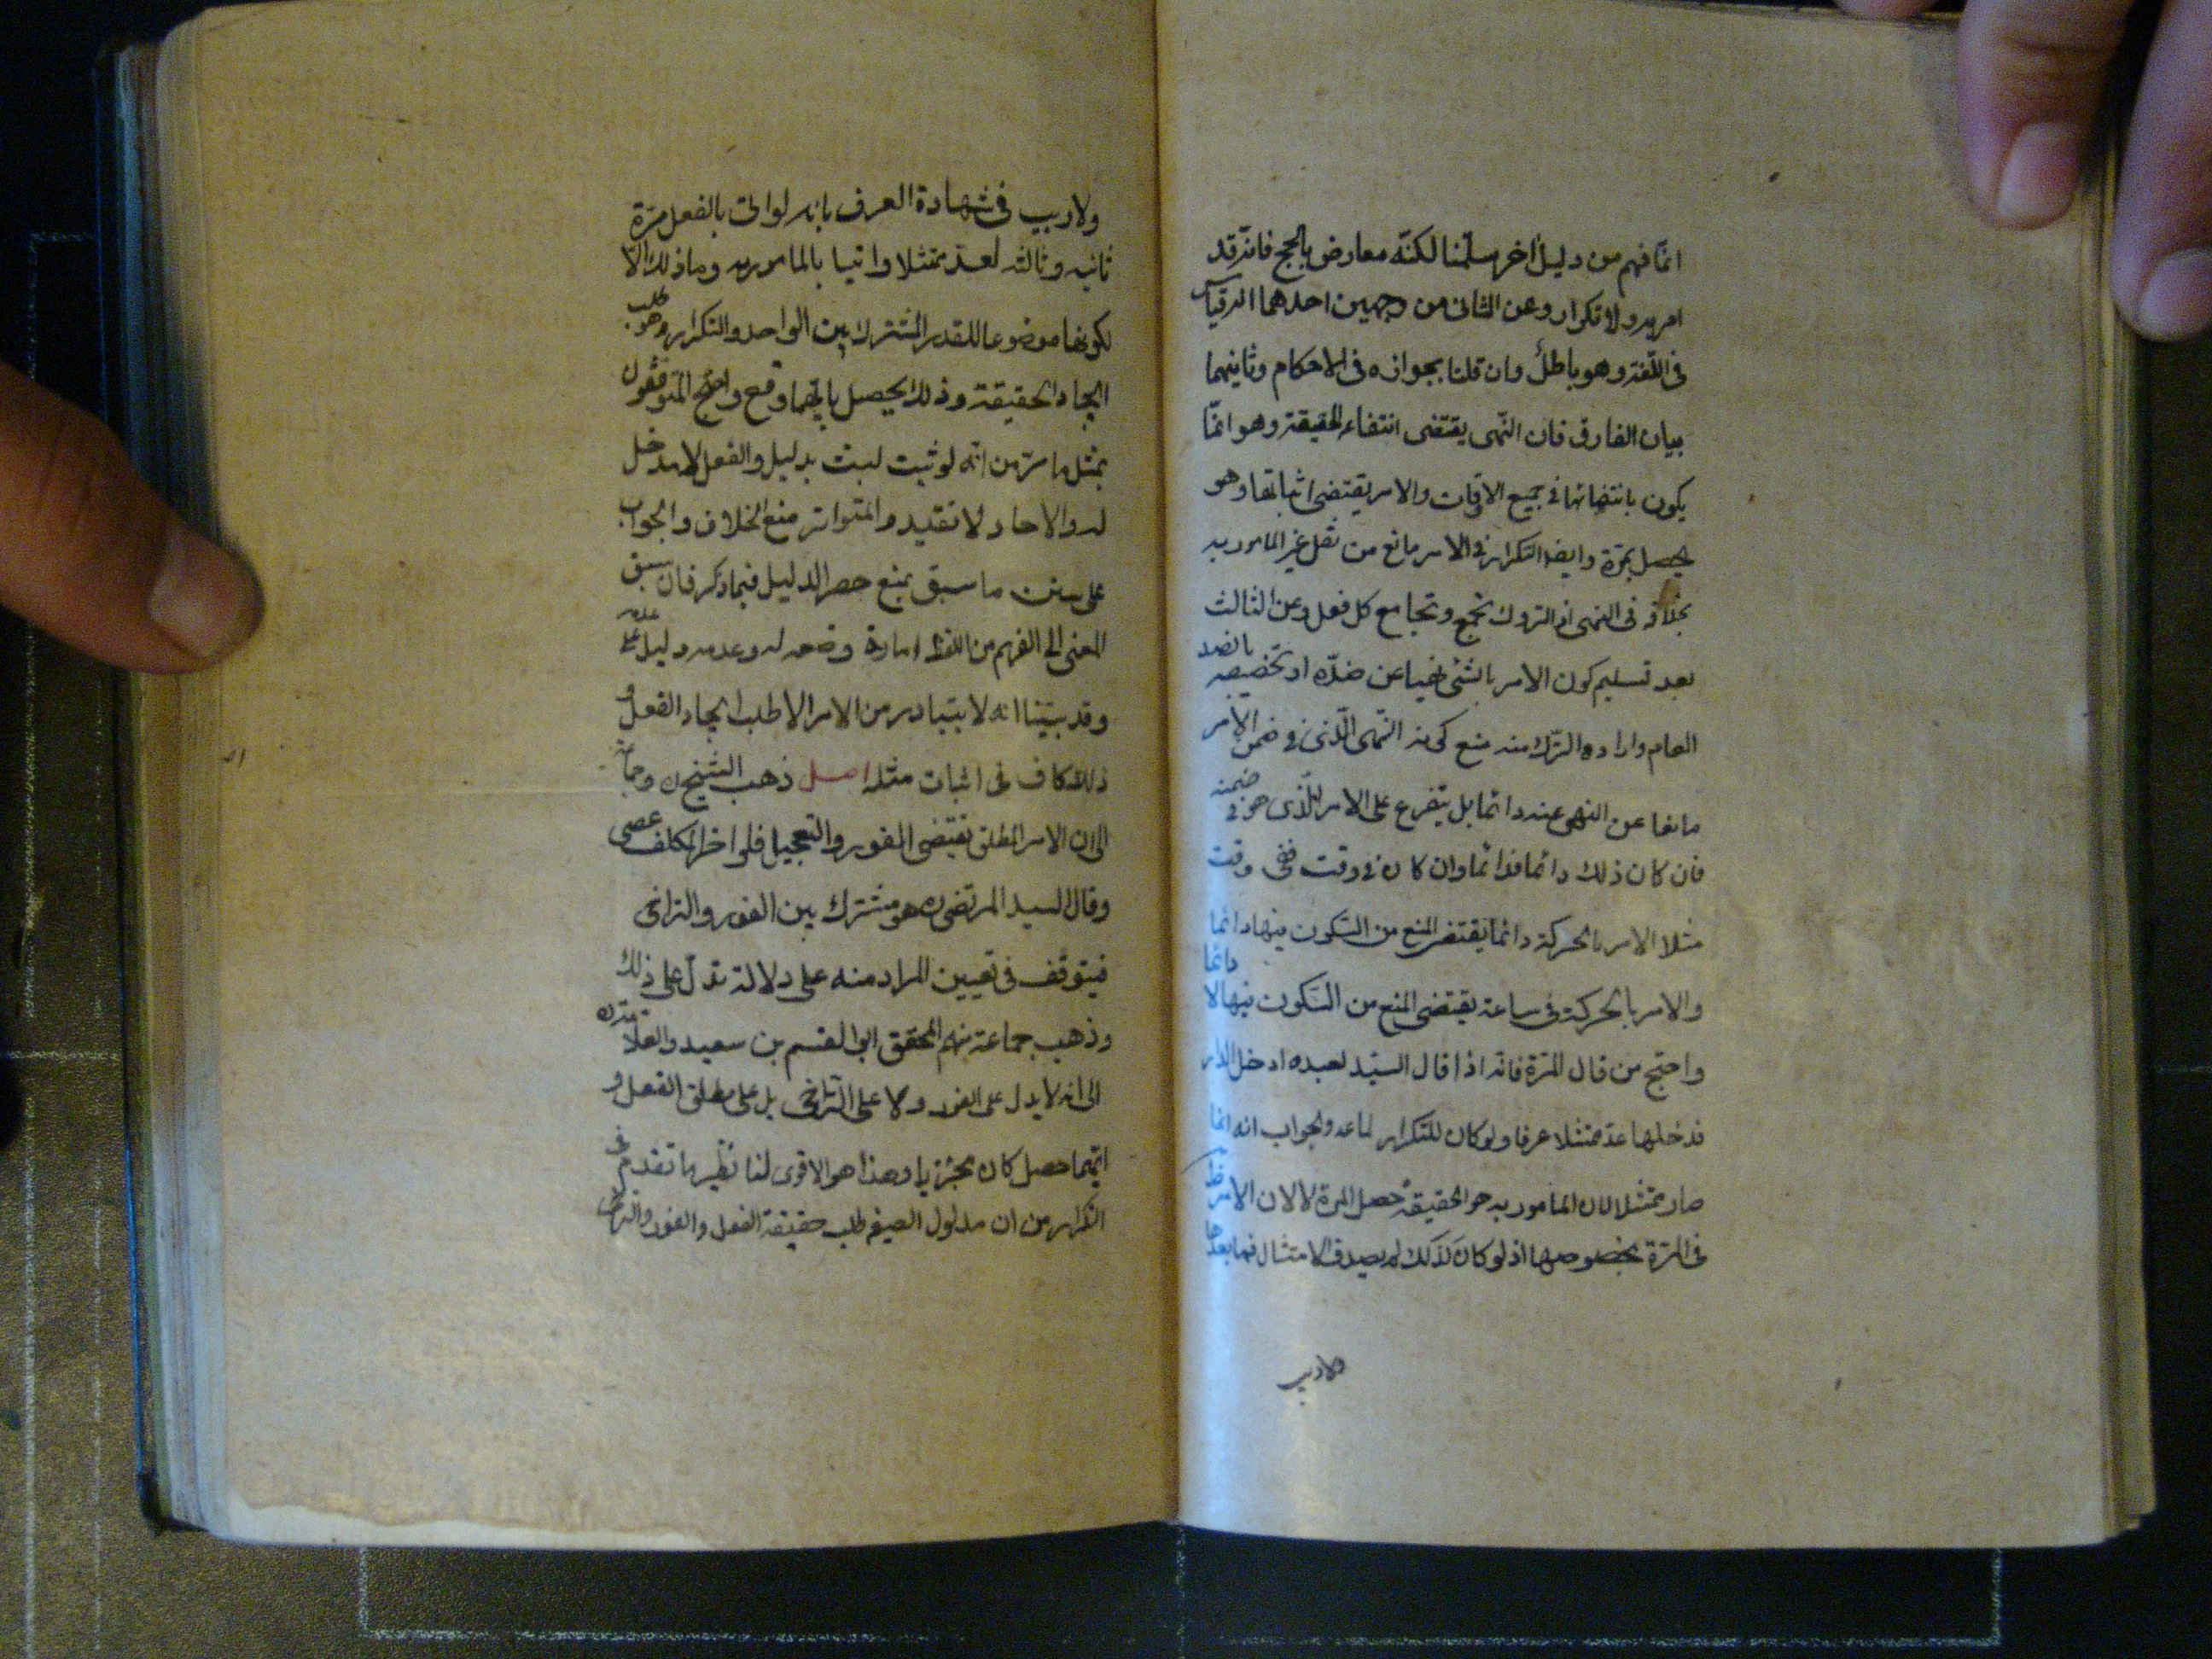 انمّا فهم من دليل اخر سلّمنا لكنّه معارض بالحج فانّه قد
امر به ولا تكرار وعن الثانى من وجهين احدهما انه قياس
فى اللّغة وهو باطل وان قلنا بجوازه فى الاحكام وثانيهما
بيان الفارق فان النّهى يقتضى انتفاء الحقيقة وهو انمّا
يكون بانتفائها فى جميع الاوقات والامر يقتضى اثباتها وهو
يحصل بمرّة وايضا التكرار فى الامر مانع من فعل غير المامور به
بخلافه فى النهى اذ التروك تجتمع وتجامع كل فعل وعن الثالث
بعد تسليم كون الامر بالشئ نهيا عن ضدّه او تخصيصه بالضد
العام وارادة الترك منه منع كون النّهى الّذى فى ضمن الامر
مانعا عن النهى عنه دائما بل يتفرع على الامر الّذى هو فى ضمنه
فان كان ذلك دائما فدائما وان كان فى وقت ففى وقت
مثلا الامر بالحركة دائما يقتضى المنع من السّكون فيها دائما
والامر بالحركة فى ساعة يقتضى المنع من السّكون فيها لا دائما
واحتج من قال بالمرّة فانّه اذا قال السيّد لعبده ادخل الدار
فدخلها عدّ ممتثلا عرفا ولو كان للتكرار لما عد والجواب انه انما
صار ممتثلا لان المامور به هو الحقيقة حصل المرة لا لان الامر ظ
فى المرّة بخصوصها اذ لو كان كذلك لم يصدق الامتثال فيما بعدها
ولا ريب
ولا ريب فى شهادة العرف بانه لو اتى بالفعل مرّة
ثانيه وثالثه لعدّ ممتثلا واتيا بالمامور به وما ذلك الّا
لكونها موضوعا للقدر المشترك بين الواحد والتكرار وهو طلب
ايجاد الحقيقة وذلك يحصل بايّهما وقع واحتج المتوقفون
بمثل ما مرّ من انّه لو ثبت لبث بدليل والفعل لا مدخل
له والاحاد لا تفيد والمتواتر منع الخلاف والجواب
على سنن ما سبق بمنع حصر الدليل فيما ذكر فان سبق
المعنى الى الفهم من اللفظ امارة وضعه له وعدمه دليل على عدمه
وقد بيّنا انه لا يتبادر من الامر الا طلب ايجاد الفعل و
ذلك كاف فى اثبات مثله اصل ذهب الشيخ ره وجماعة
الى ان الامر المطلق تقتضى الفور والتعجيل فلو اخر المكلف عصى
وقال السيد المرتضى ره هو مشترك بين الفور والتراخى
فيتوقف فى تعيين المراد منه على دلالة تدلّ على ذلك
وذهب جماعة منهم المحقق ابو القسم بن سعيد والعلامة ره
الى انه لا يدل على الفور ولا على التّراخى بل على مطلق الفعل و
ايّهما حصل كان مجزيا وهذا هو الاقوى لنا نظير ما تقدم فى
التكرار من ان مدلول الصيغه طلب حقيقة الفعل والفور والتراخى